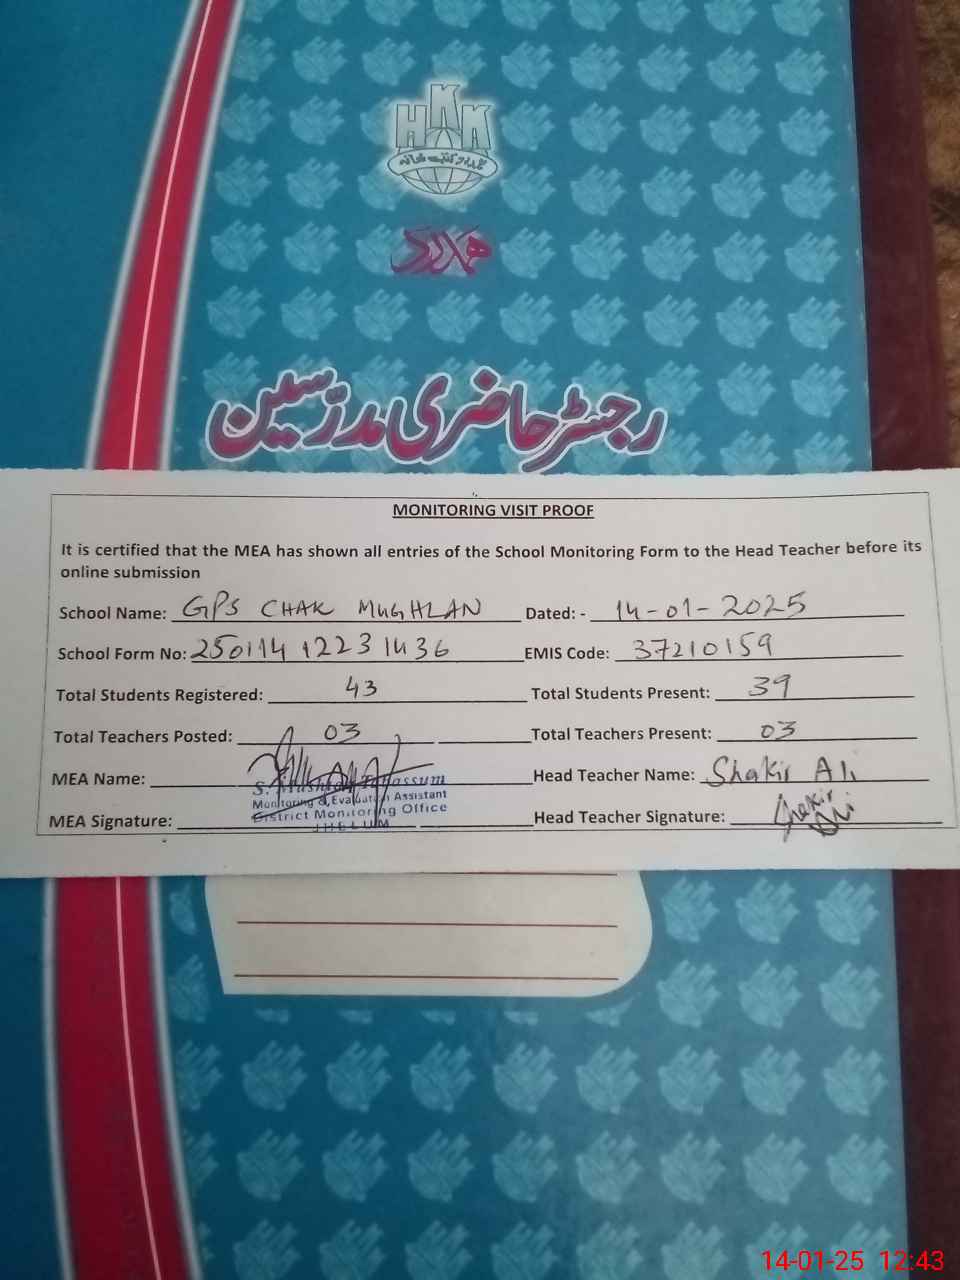 HKK
ہمدرد کتب خانہ
ہمدرد
رجسٹر حاضری مدرسین
MONITORING VISIT PROOF
It is certified that the MEA has shown all entries of the School Monitoring Form to the Head Teacher before its
online submission
School Name: GPS CHAK MUGHLAN Dated: - 14-01-2025
School Form No: 250114 1223 1436 EMIS Code: 37210159
Total Students Registered: 43 Total Students Present: 39
Total Teachers Posted: 03 Total Teachers Present: 03
MEA Name: Head Teacher Name: Shakir Ali
S. Tabassum
Monitoring & Evaluation Assistant
District Monitoring Office
JHELUM
MEA Signature: Head Teacher Signature: Shakir Ali
14-01-25 12:43